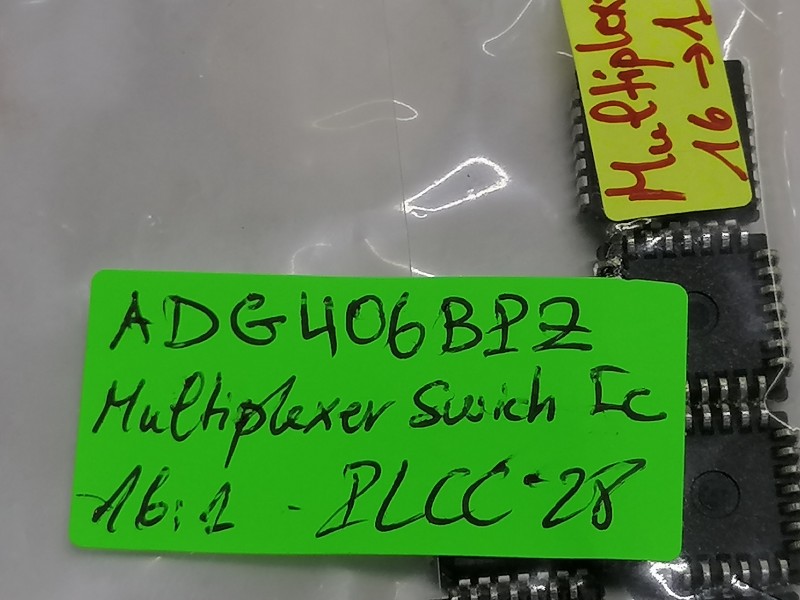 Multiplex
16→1
ADG406BPZ
Multiplexer Swich Ic
16:1 - PLCC-28